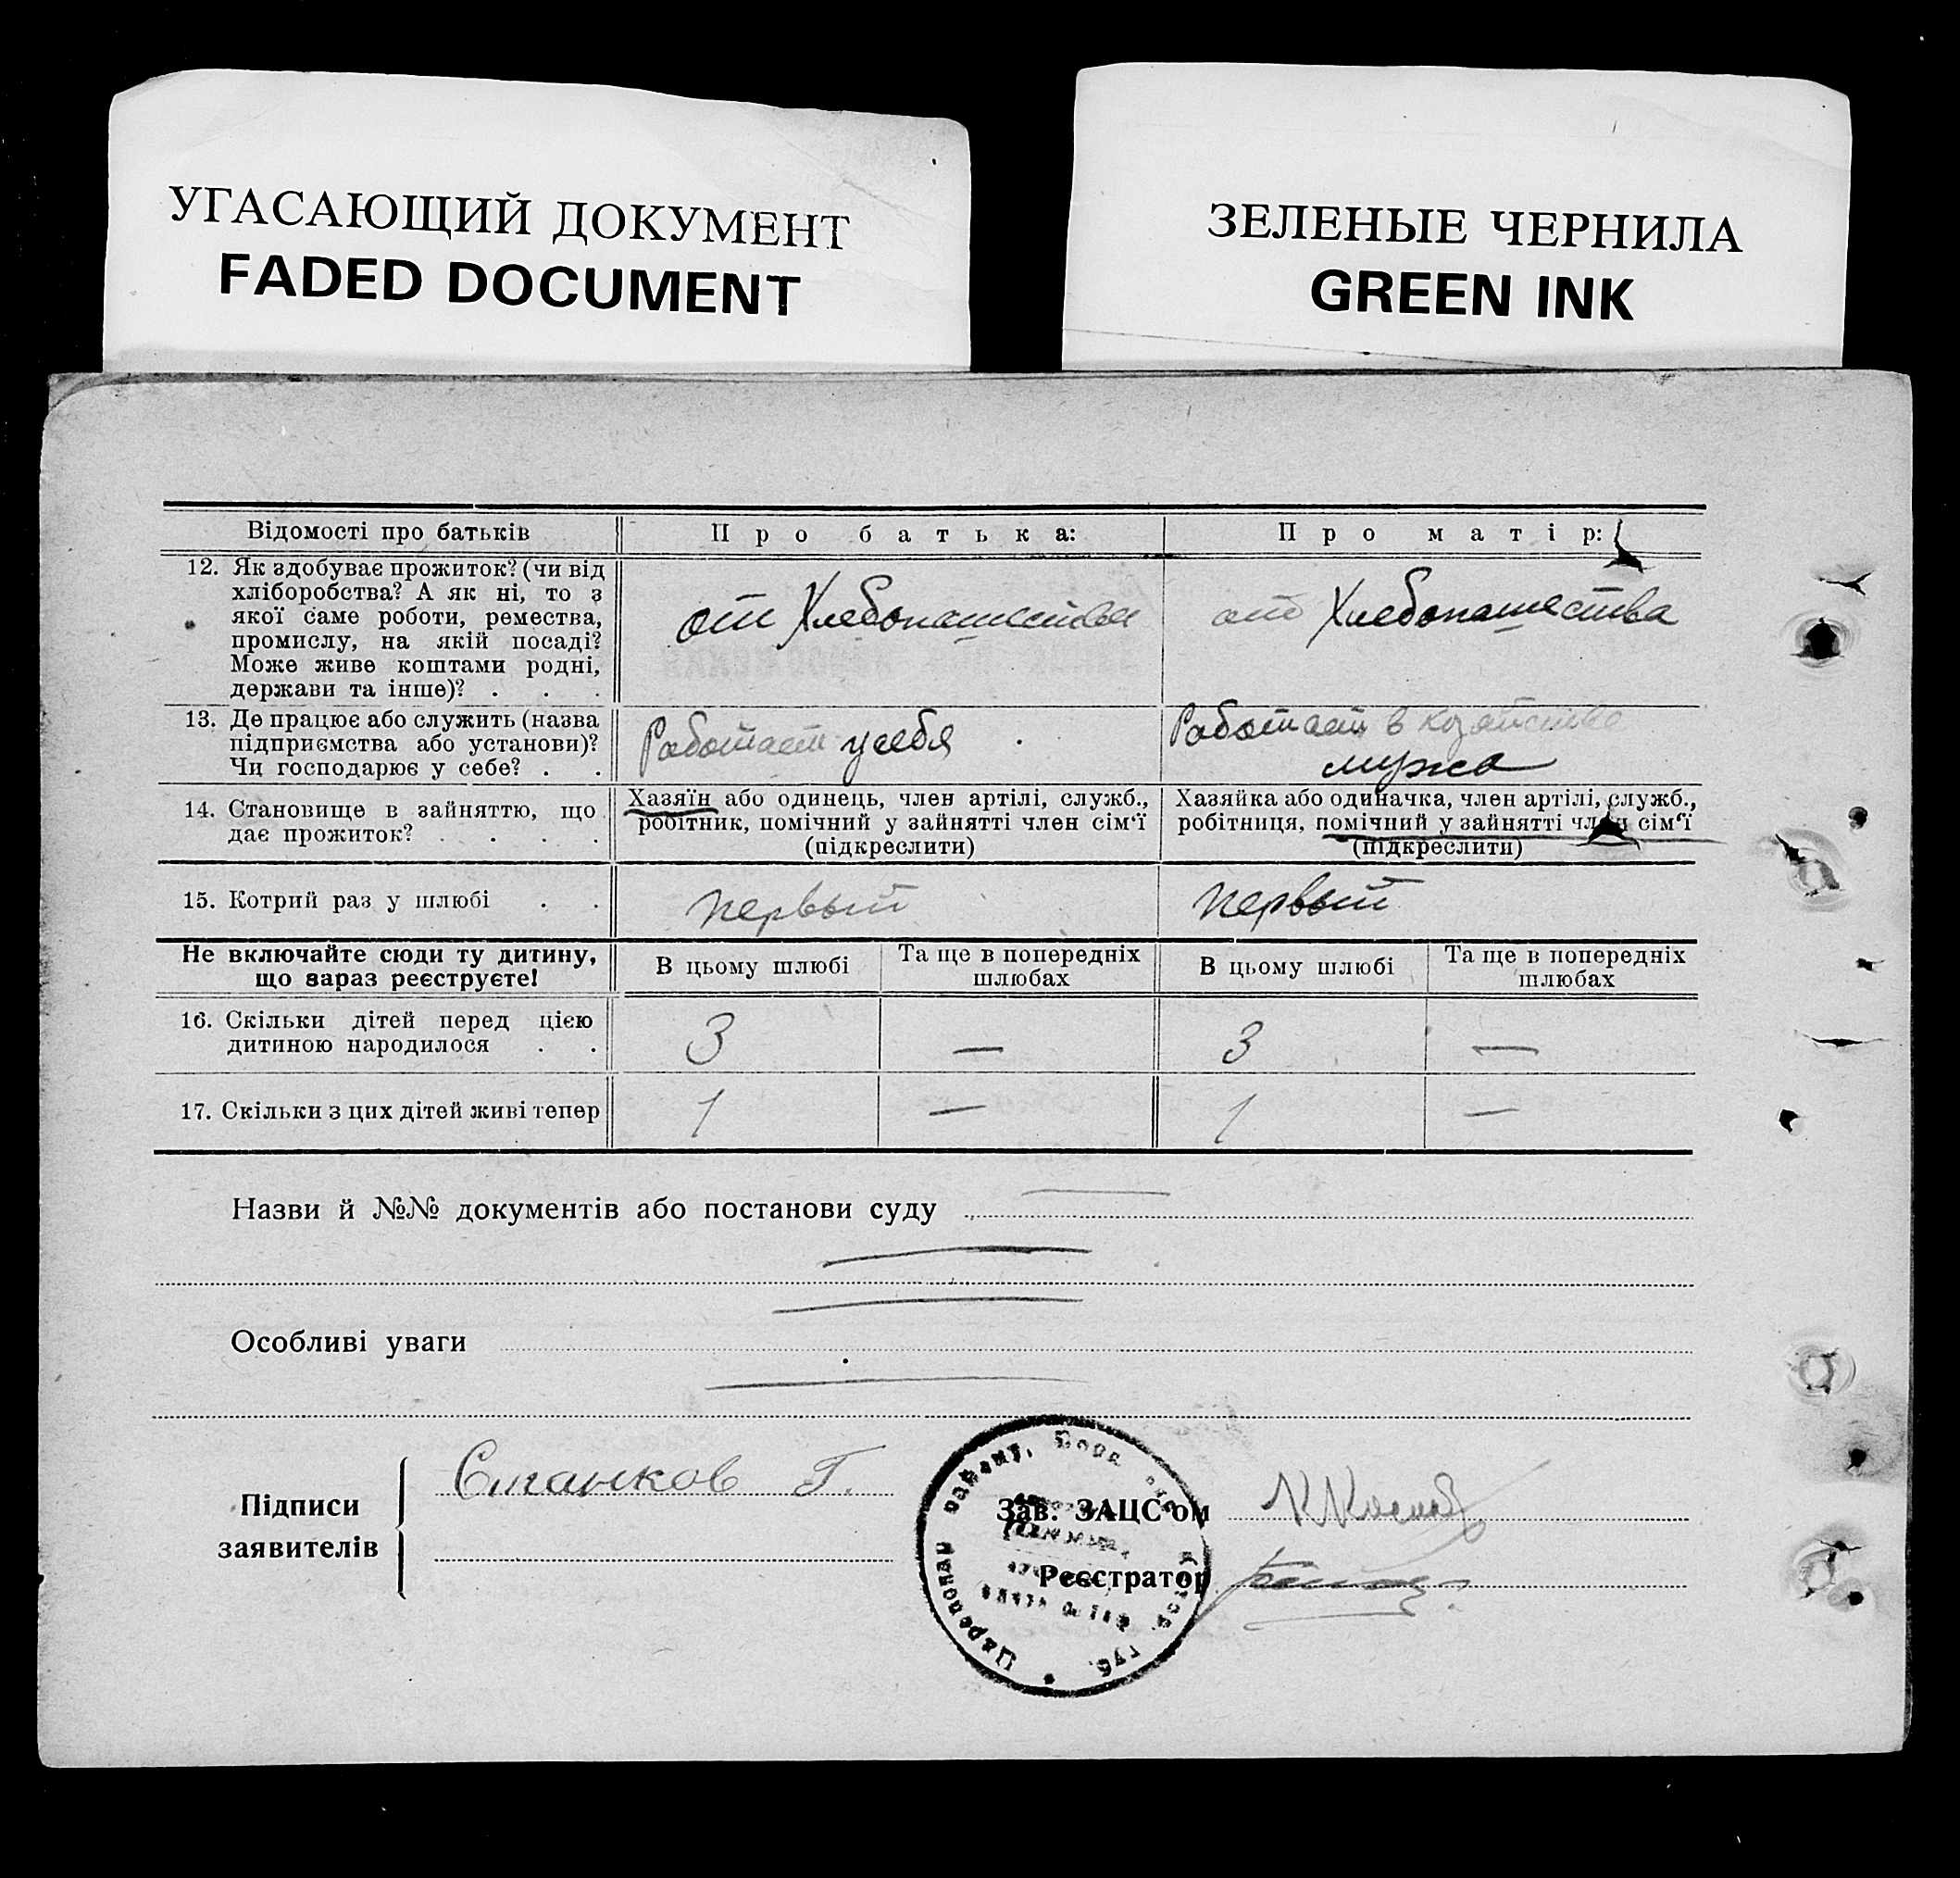 УГАСАЮЩИЙ ДОКУМЕНТ
FADED DOCUMENT
ЗЕЛЕНЫЕ ЧЕРНИЛА
GREEN INK
Відомості про батьків
Про батька:
Про матір:
12. Як здобуває прожиток? (чи від
хліборобства? А як ні, то з
якої саме роботи, ремества,
промислу, на якій посаді?
Може живе коштами родні,
держави та інше)? . . .
от Хлебопашества
от Хлебопашества
13. Де працює або служить (назва
підприємства або установи)?
Чи господарює у себе? . .
Работает у себя
Работает в хозяйстве
мужа
14. Становище в зайняттю, що
дає прожиток? . . . .
Хазяїн або одинець, член артілі, служб.,
робітник, помічний у зайнятті член сім'ї
(підкреслити)
Хазяйка або одиначка, член артілі, служб.,
робітниця, помічний у зайнятті член сім'ї
(підкреслити)
15. Котрий раз у шлюбі . .
первый
первый
Не включайте сюди ту дитину,
що вараз реєструєте!
В цьому шлюбі
Та ще в попередніх
шлюбах
В цьому шлюбі
Та ще в попередніх
шлюбах
16. Скільки дітей перед цією
дитиною народилося . .
3
—
3
—
17. Скільки з цих дітей живі тепер
1
—
1
—
Назви й №№ документів або постанови суду
Особливі уваги
Підписи
заявителів
Станков Г.
Зав. ЗАЦС'ом
Реєстратор